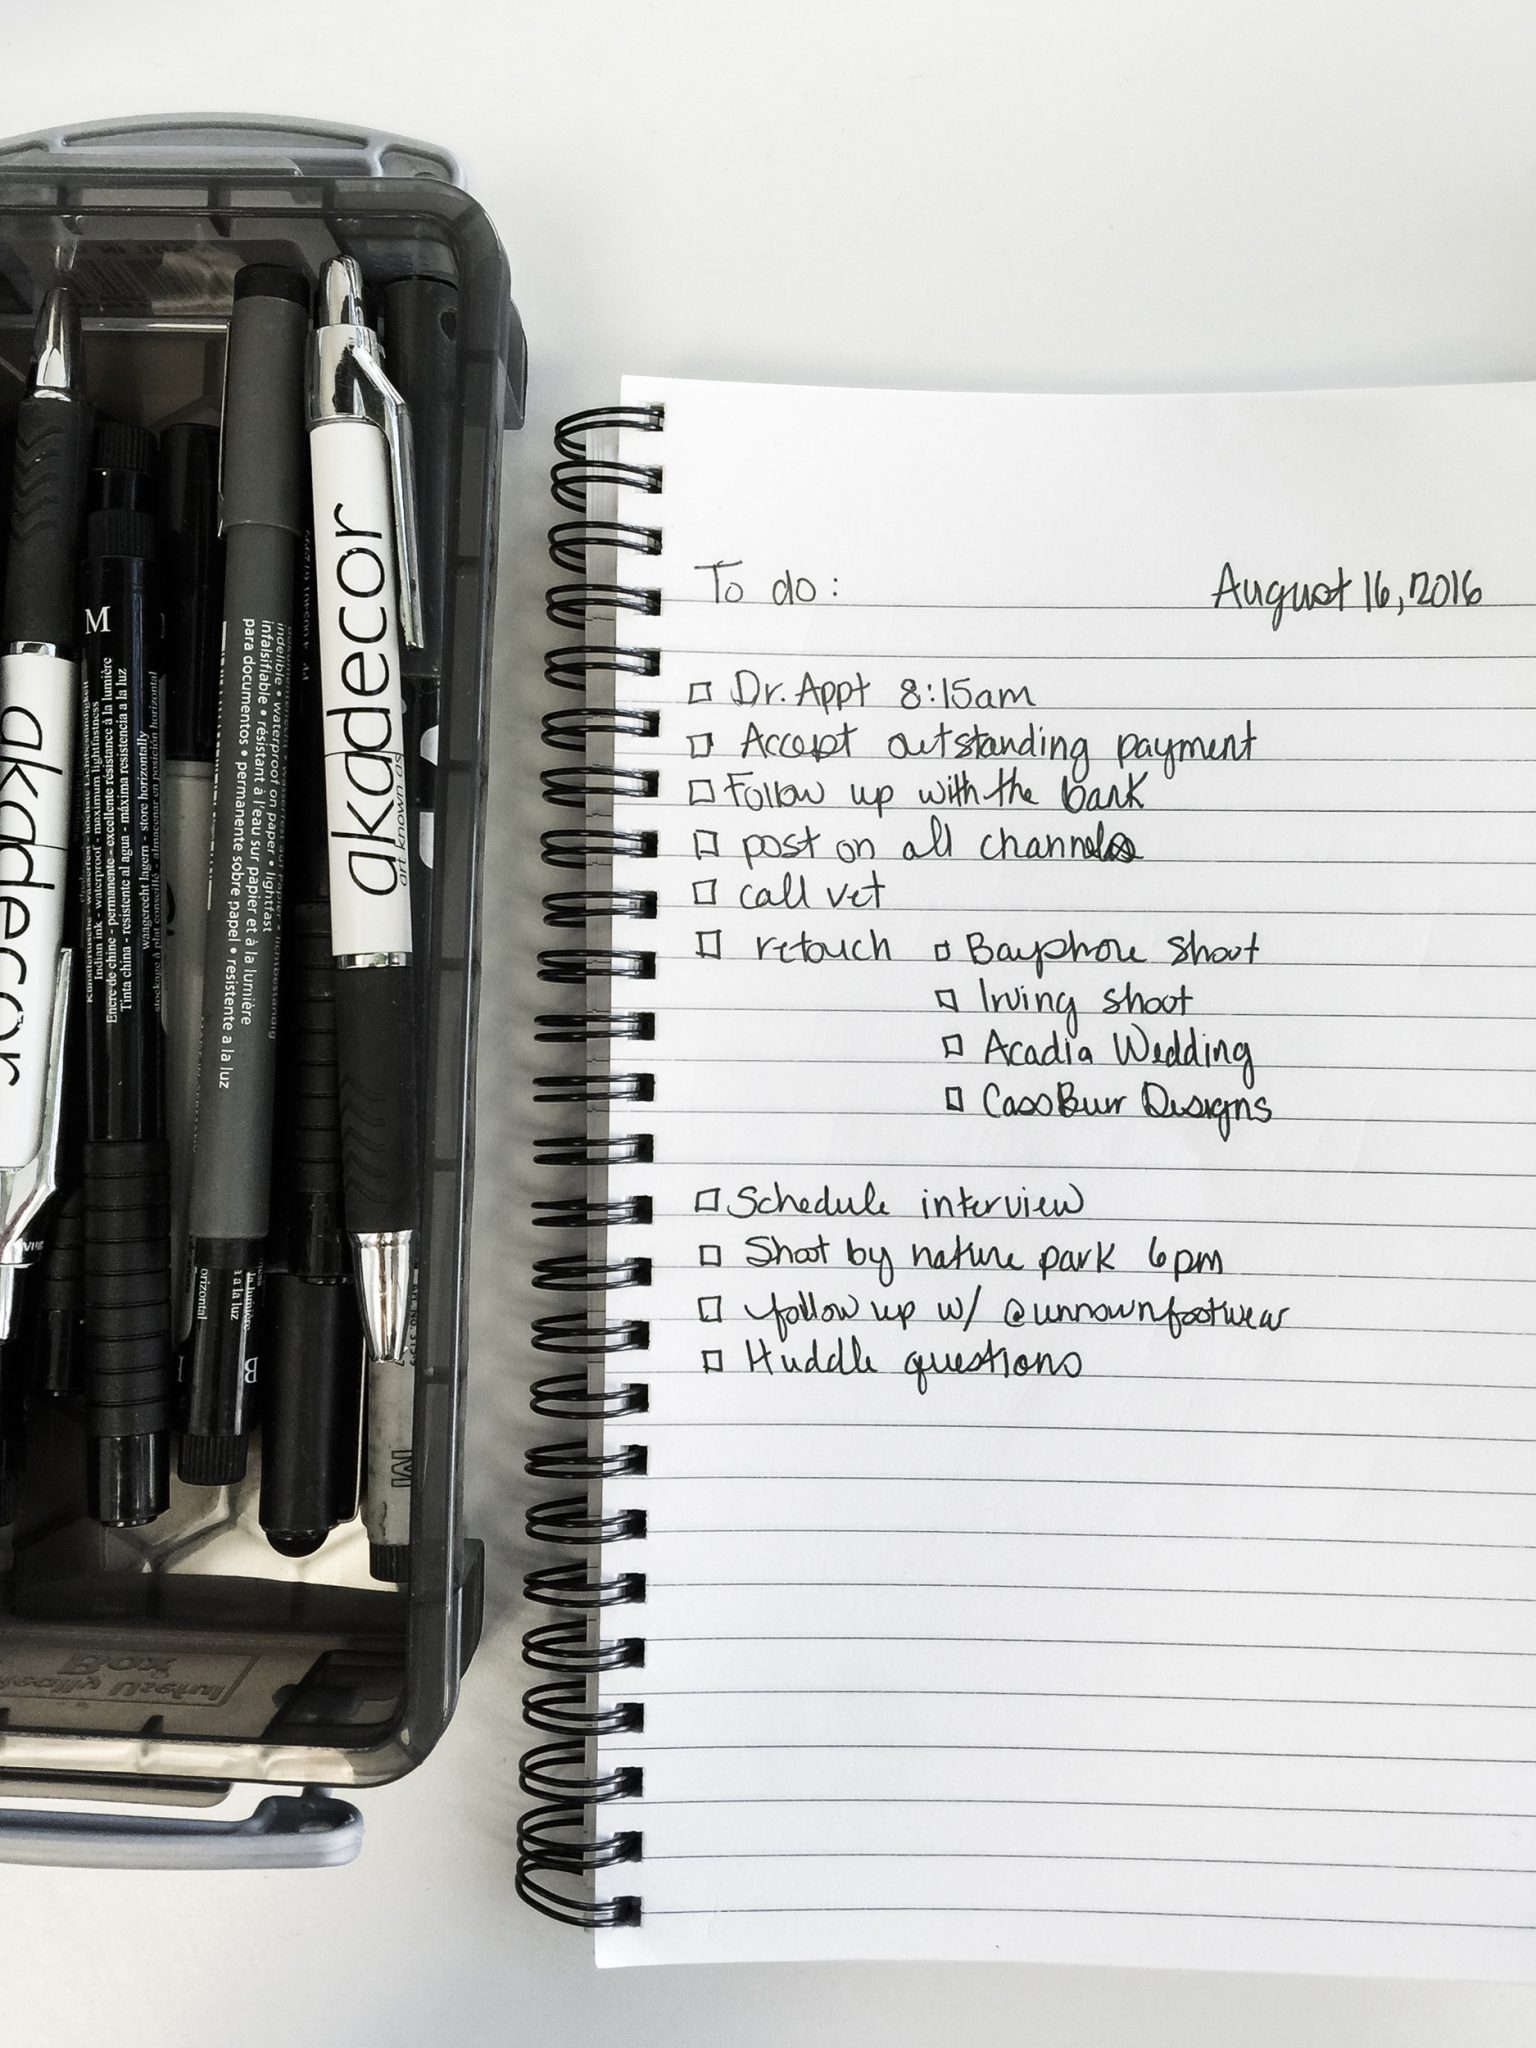 To do :
August 16, 2016
Dr. Appt 8:15am
Accept outstanding payment
Follow up with the bank
post on all channels
call vet
retouch
Bayshore shoot
Irving shoot
Acadia Wedding
CassBurr Designs
Schedule interview
Shoot by nature park 6pm
follow up w/ @unnownfootwear
Huddle questions
akadecor
art known as
akadecor
M
Indian ink - waterproof - maximum lightfastness
Encre de chine - permanente - excellente résistance à la lumière
Tinta china - resistente al agua - máxima resistencia a la luz
waagerecht lagern - store horizontally
stockage à plat conseillé - almacenar en posición horizontal
indelible • waterproof on paper • lightfast
infalsifiable • résistant à l'eau sur papier et à la lumière
para documentos • permanente sobre papel • resistente a la luz
orizontal
a la luz
la lumière
B
M
MADE IN
Really Useful
Box